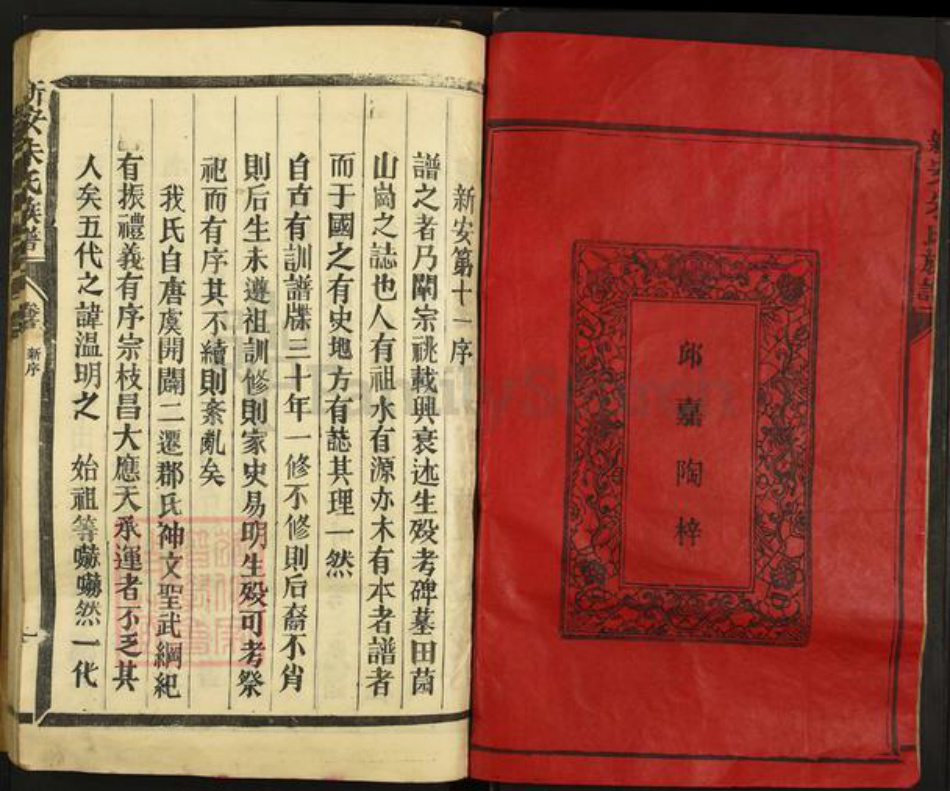 邱嘉陶梓
新安第十一序
譜之者乃闡宗祧載興衰述生殁考碑墓田
山崗之誌也人有祖水有源亦木有本者譜者
而于國之有史地方有誌其理一然
自古有訓譜牒三十年一修不修則后裔不肖
則后生未遵祖訓修則家史易明生殁可考祭
祀而有序其不續則紊亂矣
我氏自唐虞開闢二遷郡氏神文聖武綱紀
有振禮義有序宗枝昌大應天承運者不乏其
人矣五代之諱溫明之 始祖等嚇嚇然一代
新安朱氏族譜
新序
一